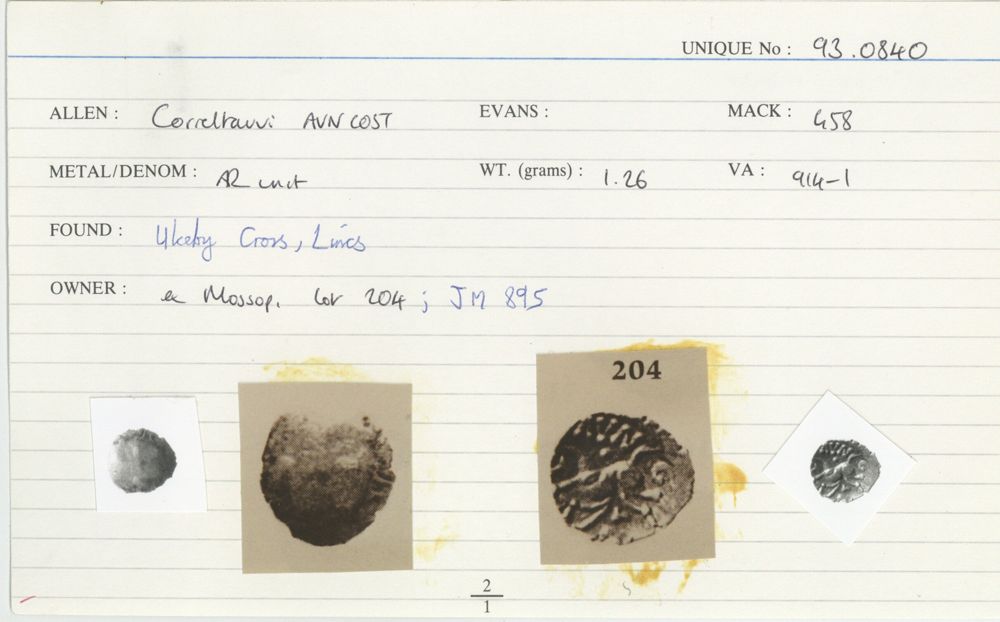 UNIQUE No : 93.0840
ALLEN : Correltauvi AVN COST EVANS : MACK : 458
METAL/DENOM : AR unit WT. (grams) : 1.26 VA : 914-1
FOUND : Ulceby Cross, Lincs
OWNER : ex Mossop, lot 204 ; JM 895
204
2
1